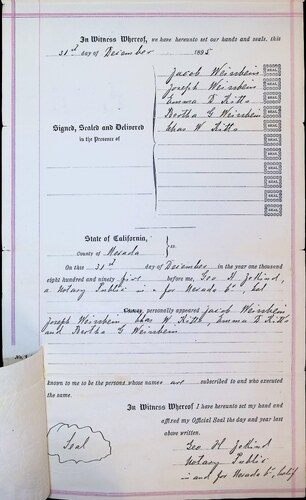 In Witness Whereof, we have hereunto set our hands and seals, this
31st day of December 1895
Jacob Weissbein
SEAL
Joseph Weissbein
SEAL
Emma D Kitts
SEAL
Bertha G Weissbein
SEAL
Chas W Kitts
SEAL
Signed, Sealed and Delivered
in the Presence of
SEAL
SEAL
SEAL
SEAL
SEAL
SEAL
State of California,
County of Nevada } ss.
On this 31st day of December in the year one thousand
eight hundred and ninety five before me, Geo H
a Notary Public in & for Nevada Co, Calif
personally appeared Jacob Weissbein
Joseph Weissbein, Chas W. Kitts, Emma D Kitts
and Bertha G Weissbein
known to me to be the persons whose names are subscribed to and who executed
the same.
In Witness Whereof I have hereunto set my hand and
affixed my Official Seal the day and year last
above written.
Seal
Geo H
Notary Public
in and for Nevada Co, Calif